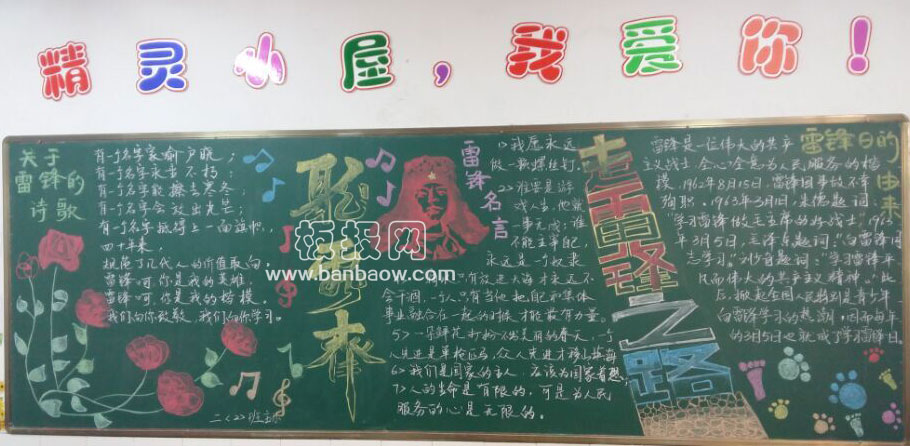 精灵小屋,我爱你!
关于
雷锋的
诗歌
有一个名字家喻户晓;
有一个名字永世不朽;
有一个名字能擦去寒冬;
有一个名字会发出光芒;
有一个名字撑得上一面旗帜,
四十年来,
代人的价值取向
雷锋啊,你是我的英雄,
雷锋啊,你是我的榜样。
我们向你致敬,我们向你学习。
二(2)班
板报网
www.banbaow.com
雷锋名言
我愿永远
做一颗螺丝钉。
谁要是游
戏人生,他就
一事无成;谁
不能主宰自己,
永远是一个奴隶
放进大海才永远不
会干涸,一个人只有当他把自己和集体
事业融合在一起的时候才能最有力量。
5、一朵鲜花打扮不出美丽的春天,一个
人先进是单枪匹马,众人先进才
6、我们是国家的主人,应该为国家着想;
7、人的生命是有限的,可是为人民
服务的心是无限的。
走雷锋之路
雷锋日的由来
雷锋是一位伟大的共产
主义战士,全心全意为人民服务的楷
模,1962年8月15日,雷锋因事故不幸
殉职。1963年3月1日,朱德题词:
"学习雷锋做毛主席的好战士"196
年3月5日,毛泽东题词:"向雷锋同
志学习"。刘少奇题词:"学习雷锋平
凡而伟大的共产主义精神。"此
后,掀起全国人民特别是青少年
向雷锋学习的热潮,因而每年
的3月5日之就成了学雷锋日。